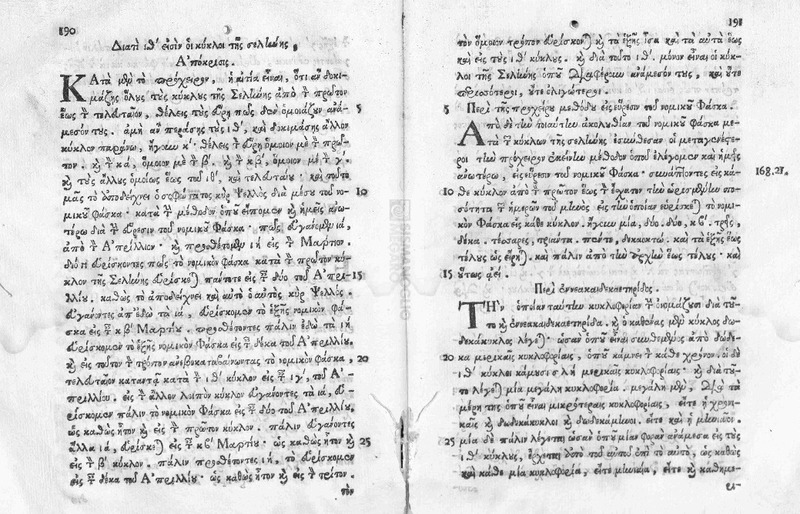 190
Διατί ιθ' εἰσὶν οἱ κύκλοι τῆς σελήνης,
Ἀπόκρισις.
Κατὰ μὲν τὸ πρόχειρον, ἡ αἰτία εἶναι, ὅτι ἂν δοκι-
μάζῃς ὅλους τοὺς κύκλους τῆς Σελήνης ἀπὸ τὸν πρῶτον
ἕως τὸν τελευταῖον, θέλεις εὕρῃ πῶς δὲν ὁμοιάζουν ἀνά- 5
μεσόν τους. ἀμὴ ἂν περάσῃς τοὺς ιθ', καὶ δοκιμάσῃς ἄλλον
κύκλον παρέκω, ἤγουν κ'. θέλεις τὸν εὕρῃ ὅμοιον μὲ τὸν πρῶ-
τον. καὶ τὸν κα', ὅμοιον μὲ τὸν β'. καὶ τὸν κβ', ὅμοιον μὲ τὸν γ'.
καὶ τοὺς ἄλλους ὁμοίως ἕως τοῦ ιθ', καὶ τελευταίου. καὶ τοῦτο
μᾶς τὸ ὑποδείχνει ὁ σοφώτατος κὺρ Ψελλὸς διὰ μέσου τοῦ νο- 10
μικοῦ φάσκα. κατὰ τὴν μέθοδον ὁποῦ εἴπομεν καὶ ἡμεῖς ἀνω-
τέρω διὰ τὴν εὕρεσιν τοῦ νομικοῦ Φάσκα. πῶς εὐγάνομεν ια,
ἀπὸ τὸν Ἀπρίλλιον. καὶ προσθέτομεν ιη εἰς τὸν Μάρτιον.
διότι εὑρίσκοντες πῶς τὸ νομικὸν φάσκα κατὰ τὸν πρῶτον κύ-
κλον τῆς Σελήνης εὑρίσκεται πάντοτε εἰς τὰς δύο τοῦ Ἀπρι- 15
λλίου. καθὼς τὸ ἀποδείχνει καὶ αὐτὸ ὁ αὐτὸς κὺρ Ψελλός.
Εὐγάνοντες ἀπ' ἐδῶ τὰ ια, εὑρίσκομεν τὸ ἑξῆς νομικὸν Φά-
σκα εἰς τὰς κβ' Μαρτίου. προσθέτοντες πάλιν ἐδῶ τὰ ιη
εὑρίσκομεν τὸ ἑξῆς νομικὸν Φάσκα εἰς τὰς δέκα τοῦ Ἀπριλλίου.
καὶ εἰς τοῦτον τὸν τρόπον ἀνεβοκαταβαίνωντας τὸ νομικὸν φάσκα, 20
τελευταῖον καταντᾷ κατὰ τὸν ιθ' κύκλον εἰς τὰς ιγ', τοῦ Ἀ-
πριλλίου. εἰς τὸν ἄλλον λοιπὸν κύκλον εὐγάνοντες τὰ ια, εὑ-
ρίσκομεν πάλιν τὸ νομικὸν Φάσκα εἰς τὰς δύο τοῦ Ἀπριλλίου,
ὡς καθὼς ἦτον καὶ εἰς τὸν πρῶτον κύκλον. πάλιν εὐγάνοντες
ἄλλα ια, εὑρίσκεται εἰς τὰς κβ' Μαρτίου. ὡς καθὼς ἦτον καὶ 25
εἰς τὸν β' κύκλον. πάλιν προσθέτοντες ιη, τὸ εὑρίσκομεν
εἰς τὰς δέκα τοῦ Ἀπριλλίου. ὡς καθὼς ἦτον καὶ εἰς τὸν τρίτον.
τὸν
191
τὸν ὅμοιον τρόπον εὑρίσκονται καὶ τὰ ἑξῆς ἴσα κατὰ τὰ αὐτὰ ἕως
καὶ εἰς τοὺς ιθ' κύκλους. καὶ διὰ τοῦτο ιθ'. μόνον εἶναι οἱ κύ-
κλοι τῆς Σελήνης ὁποῦ διαφέρουν ἀνάμεσόν τους, καὶ οὔτε
περισσότεροι, οὔτε ὀλιγώτεροι.
5 Περὶ τῆς προχείρου μεθόδου εἰς εὕρεσιν τοῦ νομικοῦ Φάσκα.
Ἀπὸ δὲ τὴν τοιαύτην ἀκολουθίαν τοῦ νομικοῦ Φάσκα με-
τὰ τῶν κύκλων τῆς σελήνης ἐσύνθεσαν οἱ μεταγενέστε-
ροι τὴν πρόχειρον ἐκείνην μέθοδον ὁποῦ ἐλέγομεν καὶ ἡμεῖς
ἀνωτέρω, εἰς εὕρεσιν τοῦ νομικοῦ Φάσκα. συνάπτοντες εἰς κά- 168.21.
10 θε κύκλον ἀπὸ τὸν πρῶτον ἕως τὸν ἔσχατον τὴν ὡρισμένην πο-
σότητα τῶν ἡμερῶν τοῦ μηνὸς εἰς τὴν ὁποίαν εὑρίσκεται τὸ νομι-
κὸν Φάσκα εἰς κάθε κύκλον. ἤγουν μία, δύο. δύο, κβ'. τρεῖς,
δέκα. τέσσαρες, τριάντα. πέντε, δεκαοκτώ. καὶ τὰ ἑξῆς ἕως
τέλους ὡς εἴρηται. καὶ πάλιν ἀπὸ τὴν ἀρχὴν ἕως τέλους. καὶ
15 οὕτως ἀεί.
Περὶ ἐννεακαιδεκαετηρίδος.
Τὴν ὁποίαν ταύτην κυκλοφορίαν τὴν ὀνομάζουσι διὰ τοῦ-
το καὶ ἐννεακαιδεκαετηρίδα. καὶ ὁ καθένας μὲν κύκλος δω-
δεκάκυκλος λέγεται. ὡσὰν ὁποῦ εἶναι συνθεμένος ἀπὸ δώδε-
20 κα μερικαῖς κυκλοφορίαις, ὁποῦ κάμνει τὸν κάθε χρόνον. οἱ δὲ
ιθ' κύκλοι κάμνουσι σλη μερικαῖς κυκλοφορίαις. καὶ διὰ τοῦ-
το λέγεται μία μεγάλη κυκλοφορία. μεγάλη μὲν, διὰ τὰ
μέρη της ὁποῦ εἶναι μικρότεραις κυκλοφορίαις, εἴτε ᾗ χρονι-
καῖς καὶ δωδεκάκυκλοι καὶ δωδεκάμηνοι. εἴτε καὶ ᾗ μηνιαῖαι.
25 μία δὲ πάλιν λέγεται ὡσὰν ὁποῦ μίαν φορὰν ἀνάμεσα εἰς τοὺς
ιθ' κύκλους, ἔρχεται ἀπὸ τοῦ αὐτοῦ ἐπὶ τὸ αὐτὸ, ὡς καθὼς
καὶ κάθε μία κυκλοφορία, εἴτε μηνιαία, εἴτε καὶ καθημε-
ρι-